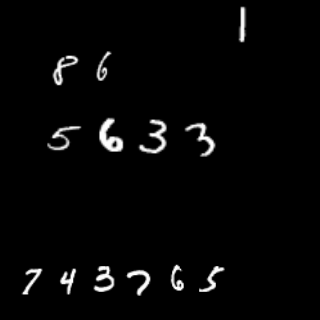 1
8 6
5 6 3 3
7 4 3 7 6 5